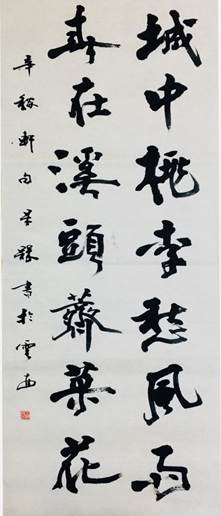 城中桃李愁風雨
春在溪頭薺菜花
辛稼軒句
書於雲